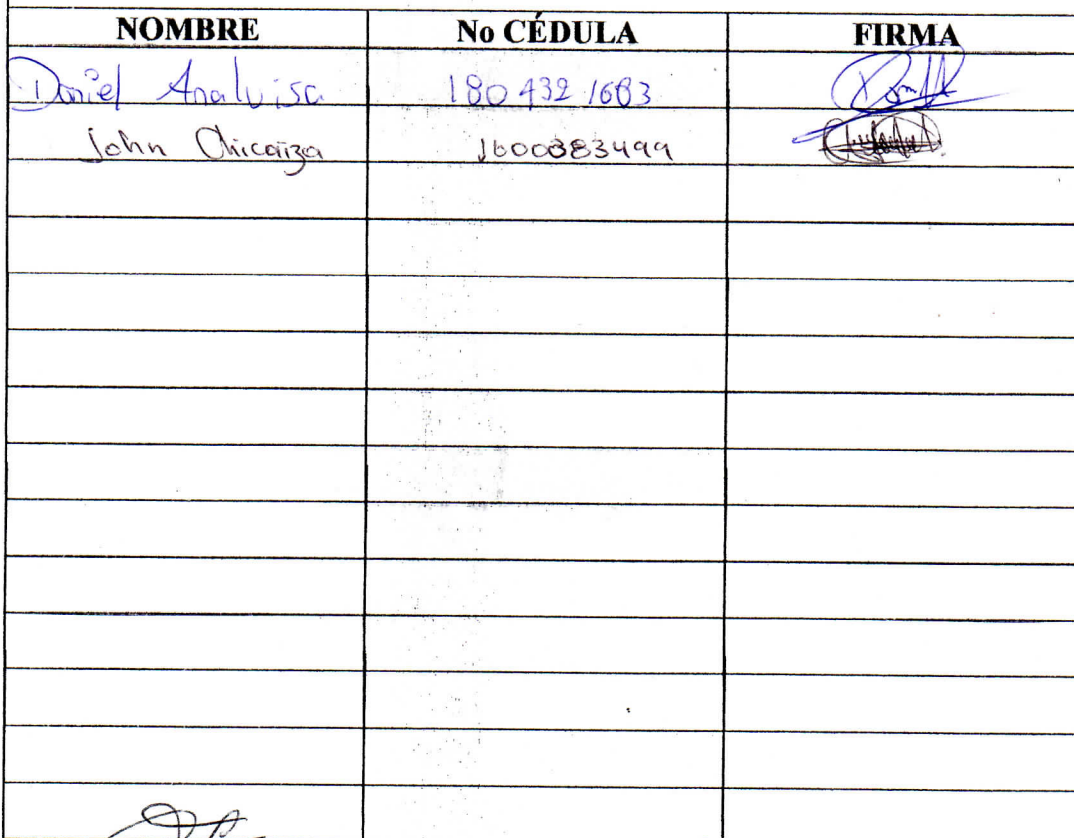 NOMBRE No CÉDULA FIRMA
Daniel Analuisa 180 432 1683
John Chicaiza 1600383499